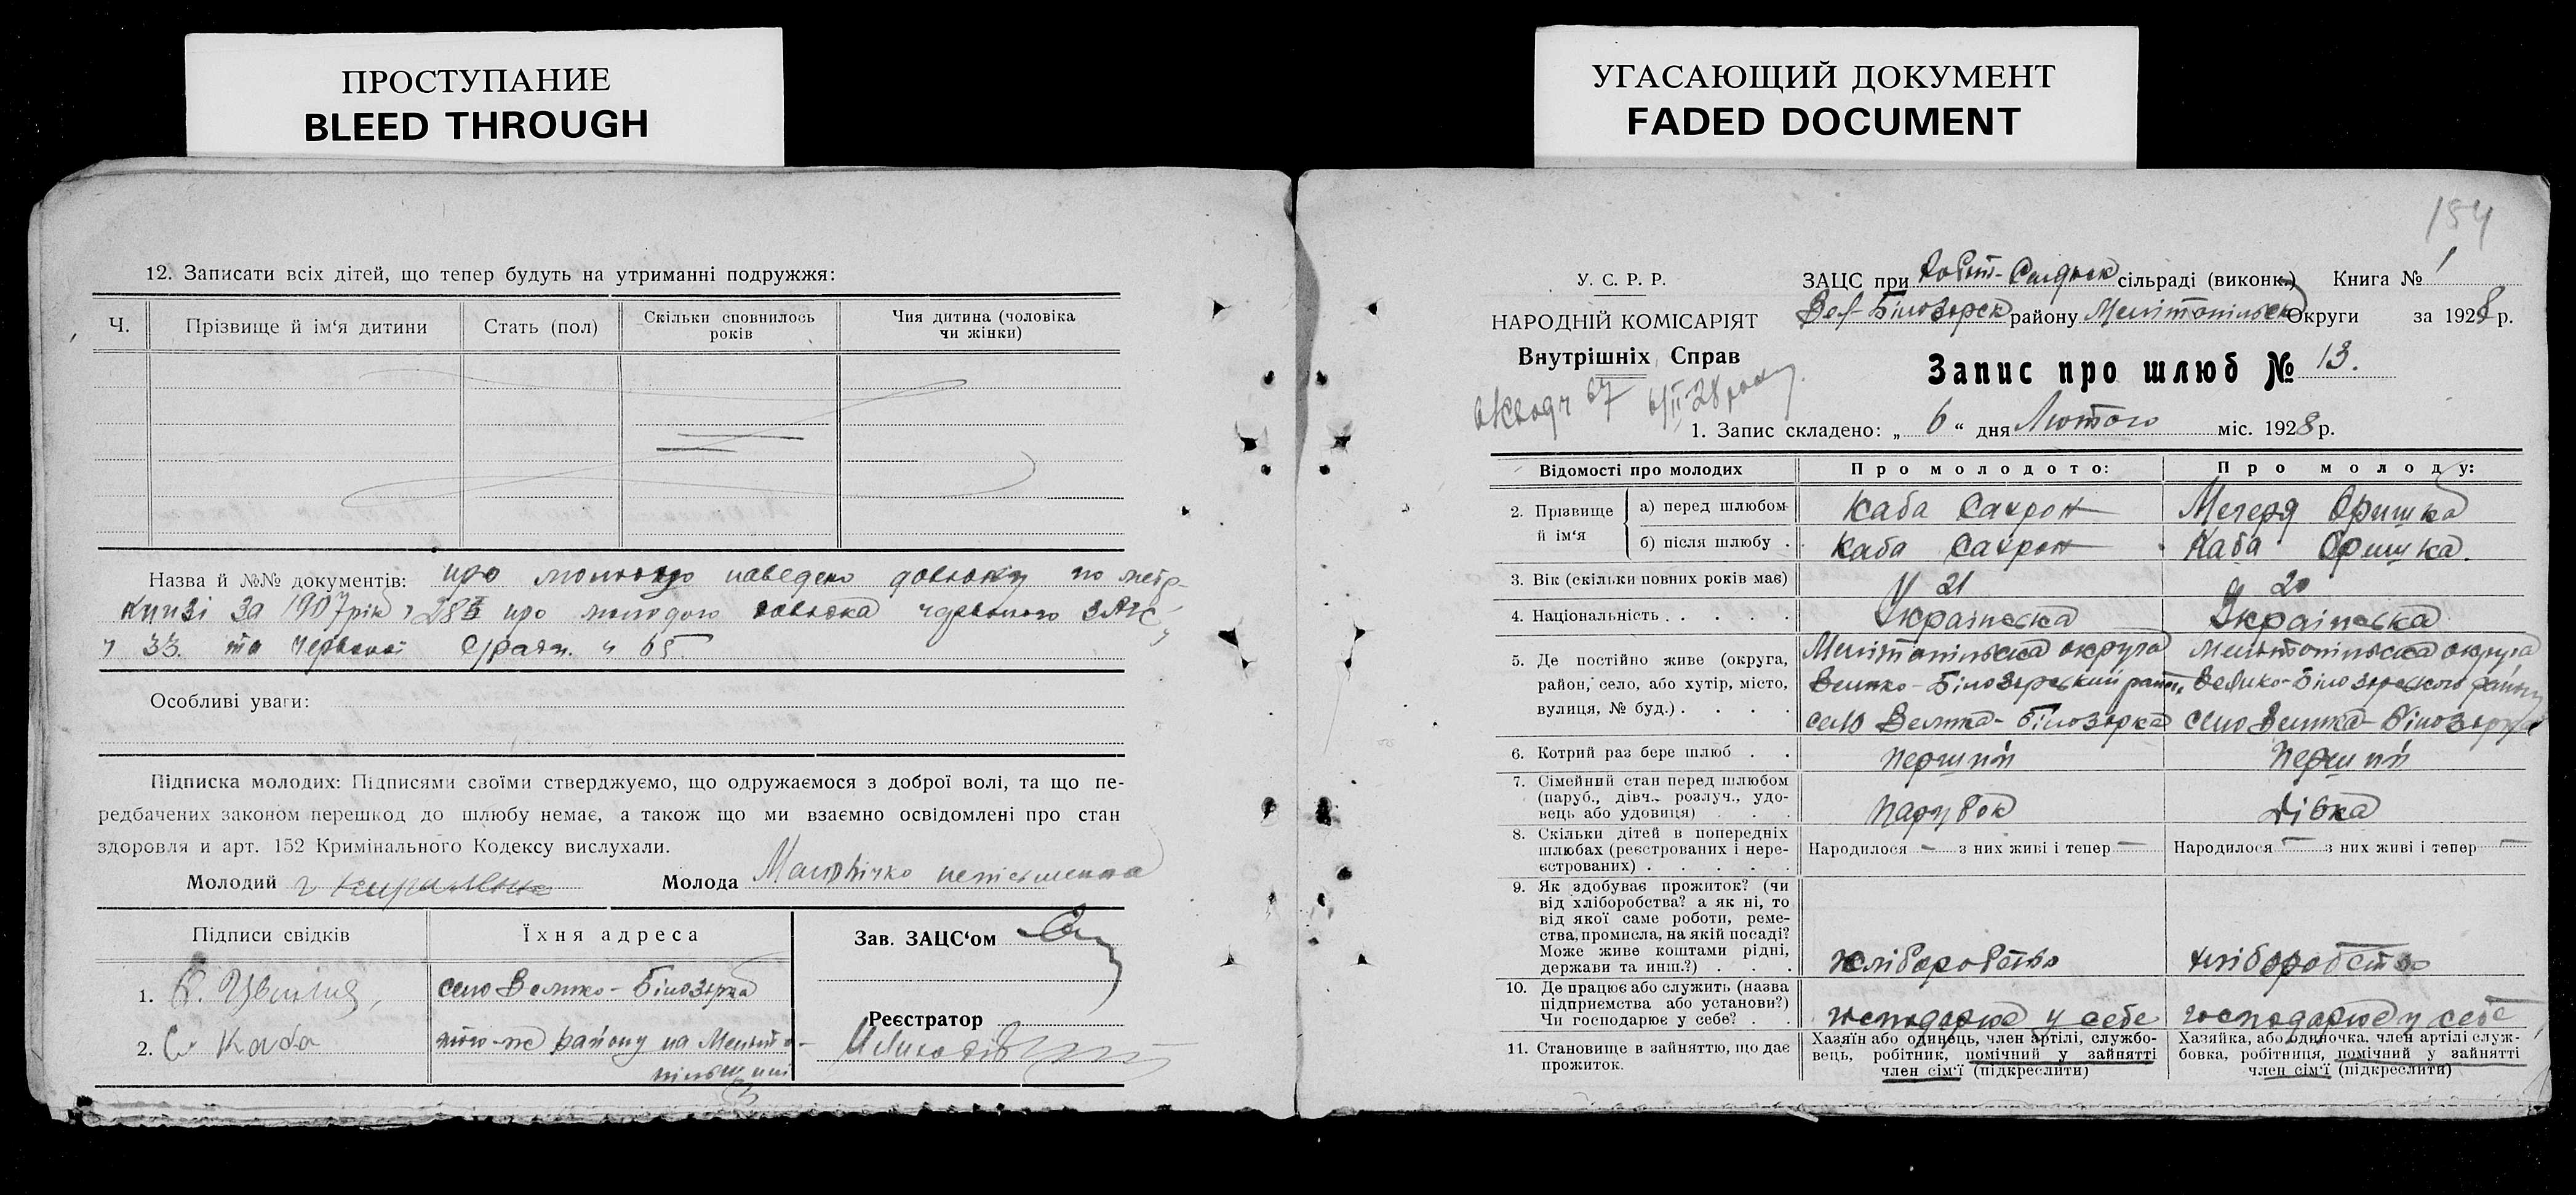 ПРОСТУПАНИЕ
BLEED THROUGH
12. Записати всіх дітей, що тепер будуть на утриманні подружжя:
Ч.
Прізвище й ім‘я дитини
Стать (пол)
Скільки сповнилось
років
Чия дитина (чоловіка
чи жінки)
Назва й №№ документів: про молоду наведено довідку по метр-
книзі за 1907 рік про молодого
ч 33. та ч 65
Особливі уваги:
Підписка молодих: Підписями своїми стверджуємо, що одружаємося з доброї волі, та що пе-
редбачених законом перешкод до шлюбу немає, а також що ми взаємно освідомлені про стан
здоровля и арт. 152 Кримінального Кодексу вислухали.
Молодий
Молода неписьменна
Підписи свідків
Їхня адреса
Зав. ЗАЦС‘ом
1.
село Велико-Білозірка
Реєстратор
2. С Каба
того-же району на Меліто-
пільщині
УГАСАЮЩИЙ ДОКУМЕНТ
FADED DOCUMENT
154
У. С. Р. Р.
НАРОДНІЙ КОМІСАРІЯТ
Внутрішніх Справ
67 6/II-28 року.
ЗАЦС при сільраді (виконк.) Книга № 1
Вел-Білозорск району Мелітопільск Округи за 1928 р.
Запис про шлюб № 13.
1. Запис складено: „ 6 “ дня Лютого міс. 1928 р.
Відомості про молодих
Про молодого:
Про молоду:
2. Прізвище й ім‘я
а) перед шлюбом
Каба Сахрон
Мегеря Оришка
б) після шлюбу
Каба Сахрон
Каба Оришка.
3. Вік (скільки повних років має)
21
20
4. Національність
Українська
Українська
5. Де постійно живе (округа,
район, село, або хутір, місто,
вулиця, № буд.)
Мелітопільська округа
Велико-Білозерський район
село Велика-Білозорка
Мелітопільська округа
Велико-Білозерського району
село Велика-Білозорка
6. Котрий раз бере шлюб
перший
перший
7. Сімейний стан перед шлюбом
(паруб., дівч., розлуч., удо-
вець або удовиця)
парубок
дівка
8. Скільки дітей в попередніх
шлюбах (реєстрованих і нере-
єстрованих)
Народилося — з них живі і тепер —
Народилося — з них живі і тепер —
9. Як здобуває прожиток? (чи
від хліборобства? а як ні, то
від якої саме роботи, реме-
ства, промисла, на якій посаді?
Може живе коштами рідні,
держави та инш.?)
хліборобство
хліборобство
10. Де працює або служить (назва
підприємства або установи?)
Чи господарює у себе?
господарює у себе
господарює у себе
11. Становище в зайняттю, що дає
прожиток.
Хазяїн або одинець, член артілі, службо-
вець, робітник, помічний у зайнятті
член сім‘ї (підкреслити)
Хазяйка, або одиночка, член артілі служ-
бовка, робітниця, помічний у зайнятті
член сім‘ї (підкреслити)